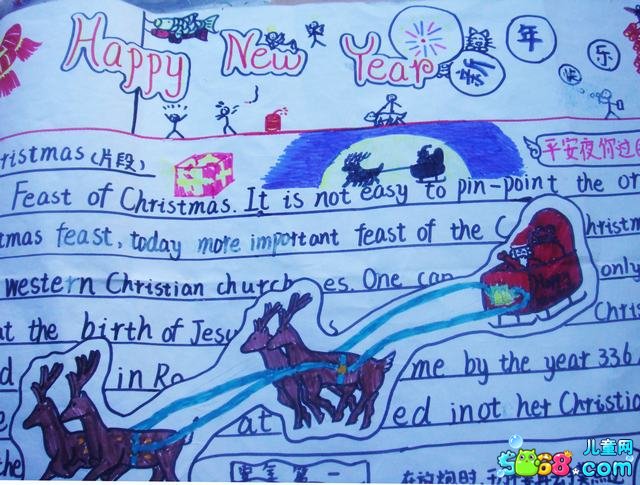 Happy New Year 新年快乐
ristmas(片段)
平安夜你过
Feast of Christmas. It is not easy to pin-point the or
tmas feast, today more important feast of the C hristm
western Christian church es. One can only
at the birth of Jesu Chris
d in Ro me by the year 336.
at ed inot her Christia
the
安全第一
在放炮时,
儿童网
5068.com